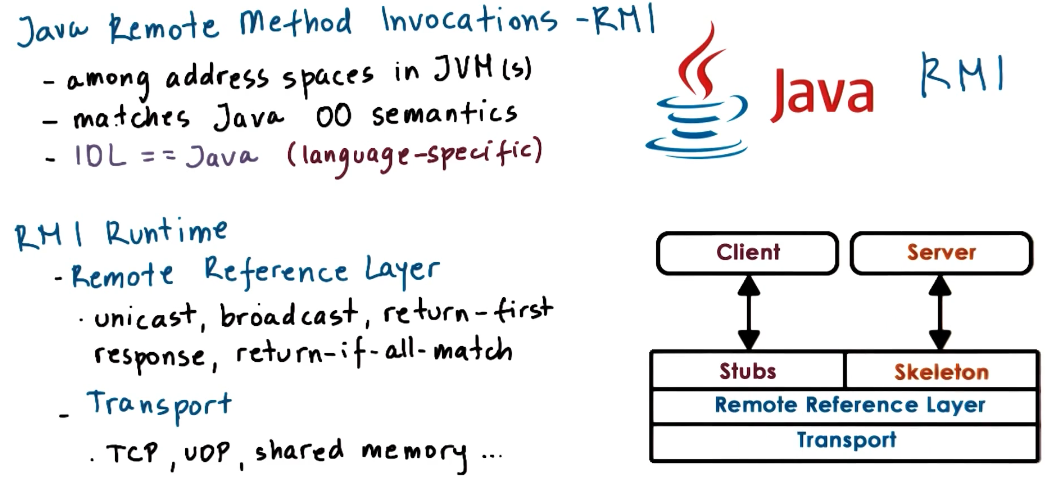 Java Remote Method Invocations - RMI
- among address spaces in JVM(s)
- matches Java OO semantics
- IDL == Java (language-specific)
Java
RMI
RMI Runtime
- Remote Reference Layer
· unicast, broadcast, return-first
response, return-if-all-match
- Transport
· TCP, UDP, shared memory ...
Client
Server
Stubs
Skeleton
Remote Reference Layer
Transport